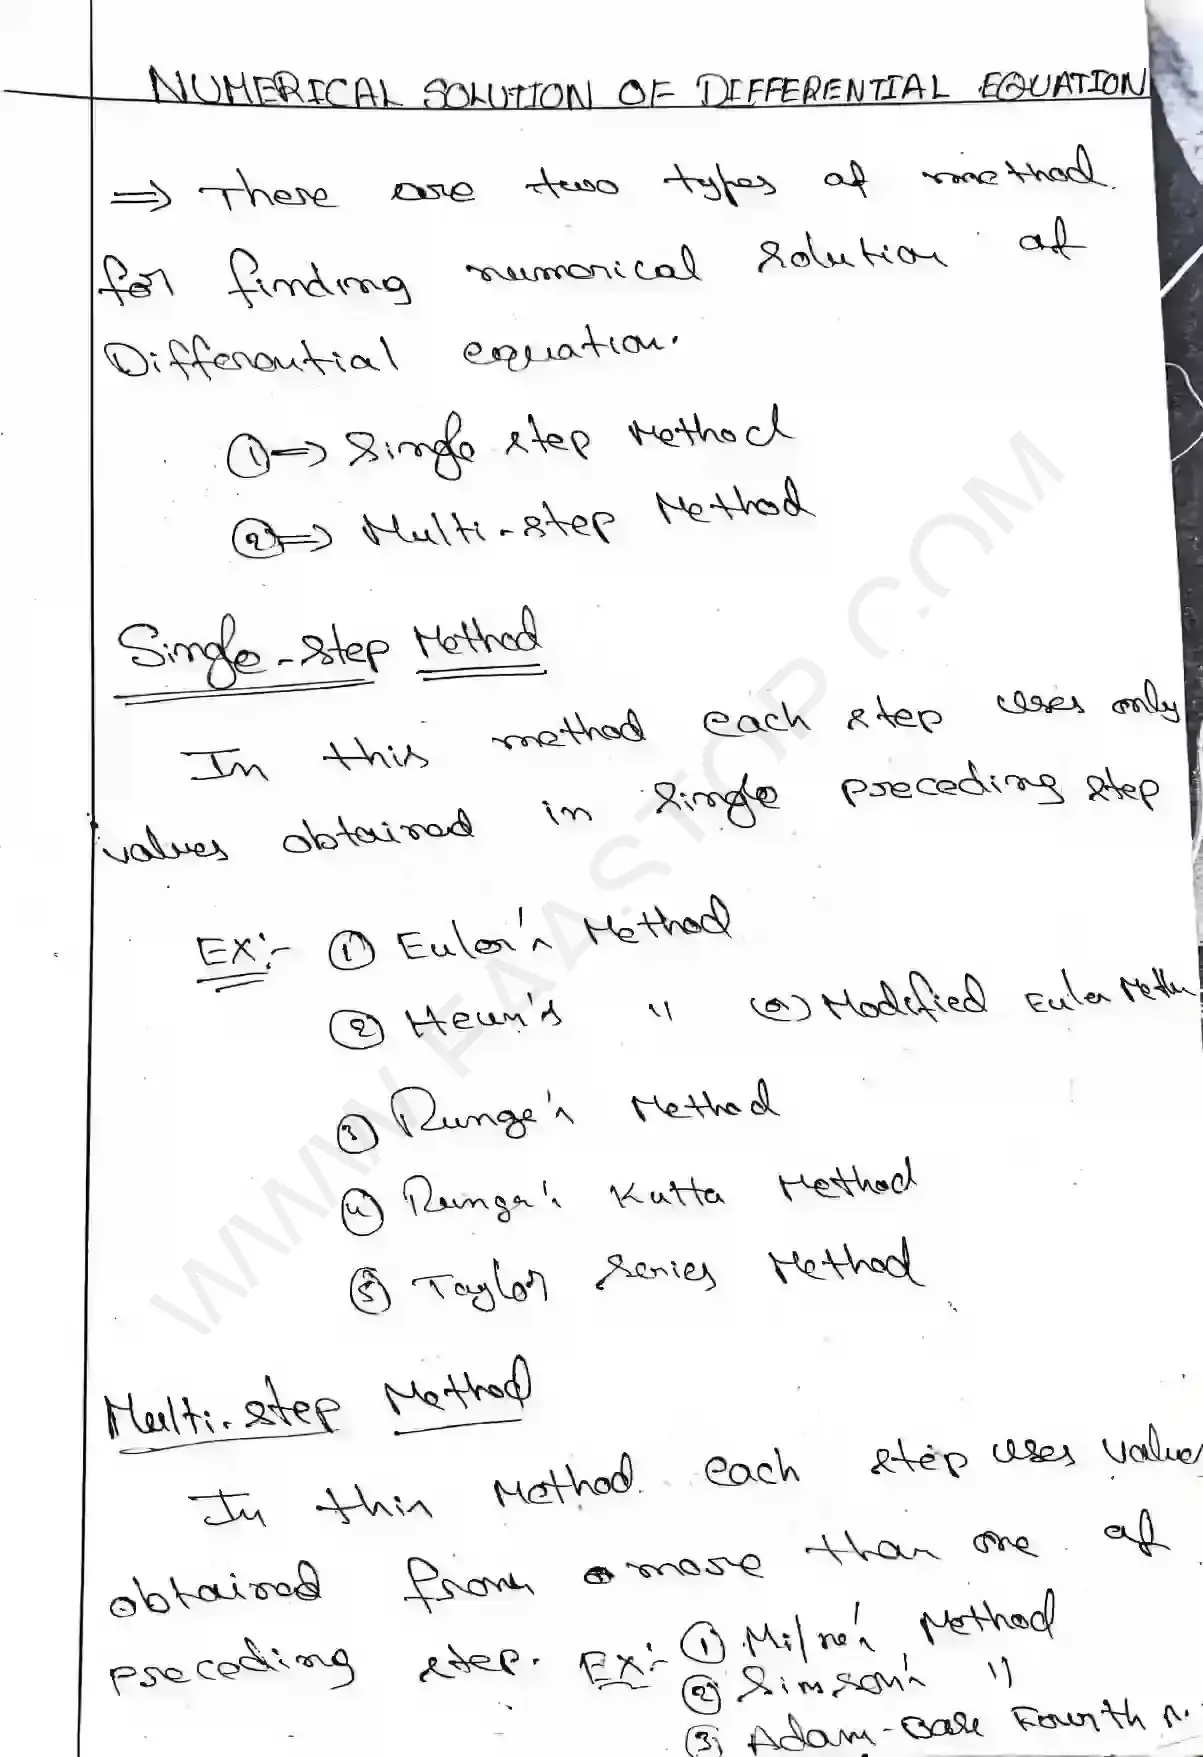 NUMERICAL SOLUTION OF DIFFERENTIAL EQUATION
⇒ There are two types of method.
for finding numerical solution of
Differential equation.
① ⇒ Single step Method
② ⇒ Multi-step Method
Single-step Method
In this method each step uses only
values obtained in single preceding step
EX:- ① Euler's Method
② Heun's " (or) Modified Euler
③ Runge's Method
④ Runge's Kutta Method
⑤ Taylor Series Method
Multi-step Method
In this Method each step uses value
obtained from more than one of
preceding step. EX:- ① Milne's Method
② Simson's "
③ Adam- Fourth
WWW.FAASTOP.COM